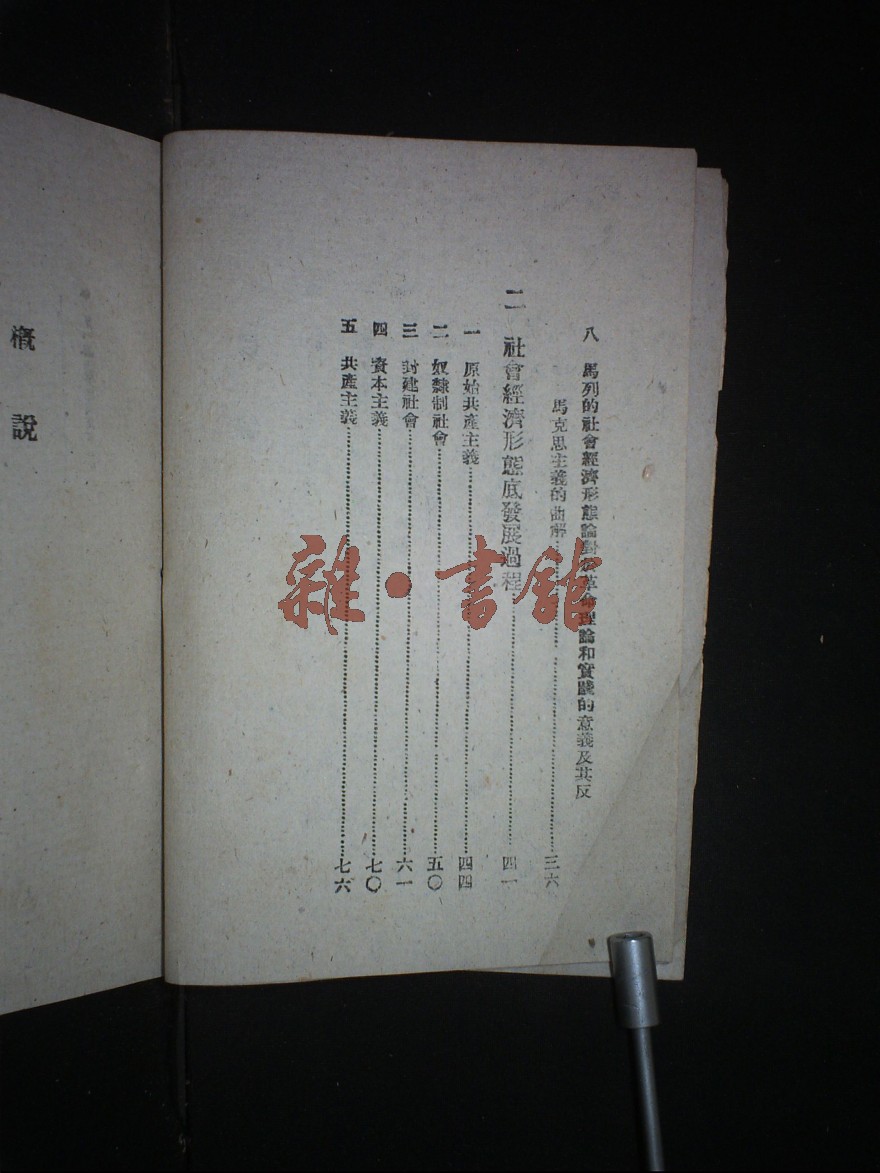 八　馬列的社會經濟形態論對於革命理論和實踐的意義及其反
馬克思主義的曲解……三六
二　社會經濟形態底發展過程……四一
一　原始共產主義……四四
二　奴隸制社會……五〇
三　封建社會……六一
四　資本主義……七〇
五　共產主義……七六
概說
雜·書館